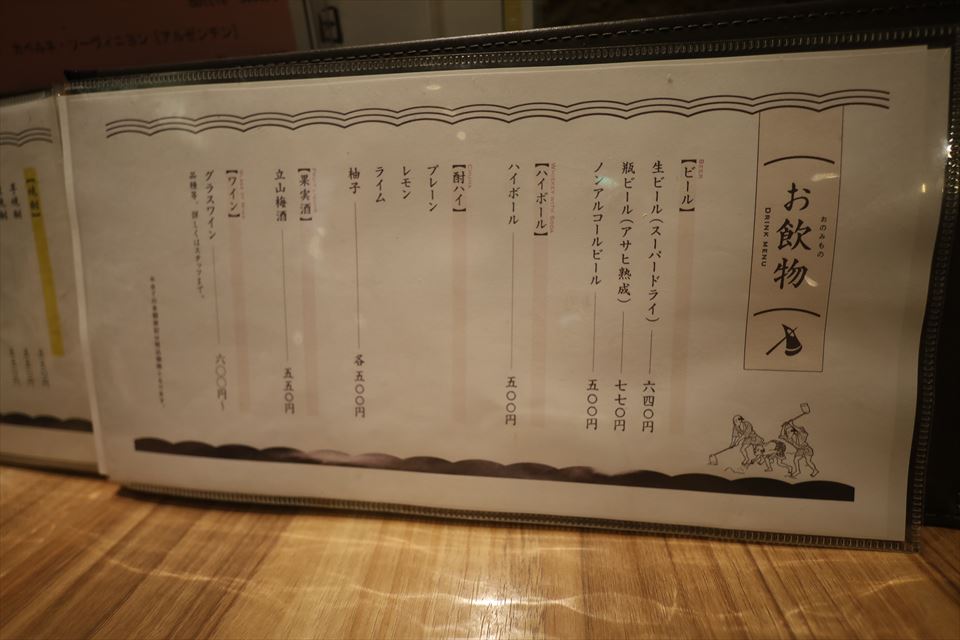 カベルネ・ソーヴィニヨン [アルゼンチン]
おのみもの
お飲物
DRINK MENU
【ビール】
BEER
生ビール（スーパードライ） 六四〇円
瓶ビール（アサヒ熟成） 七七〇円
ノンアルコールビール 五〇〇円
【ハイボール】
ハイボール 五〇〇円
【酎ハイ】
プレーン
レモン
ライム
柚子 各五〇〇円
【果実酒】
立山梅酒 五五〇円
【ワイン】
グラスワイン 六〇〇円〜
品種等、詳しくはスタッフまで。